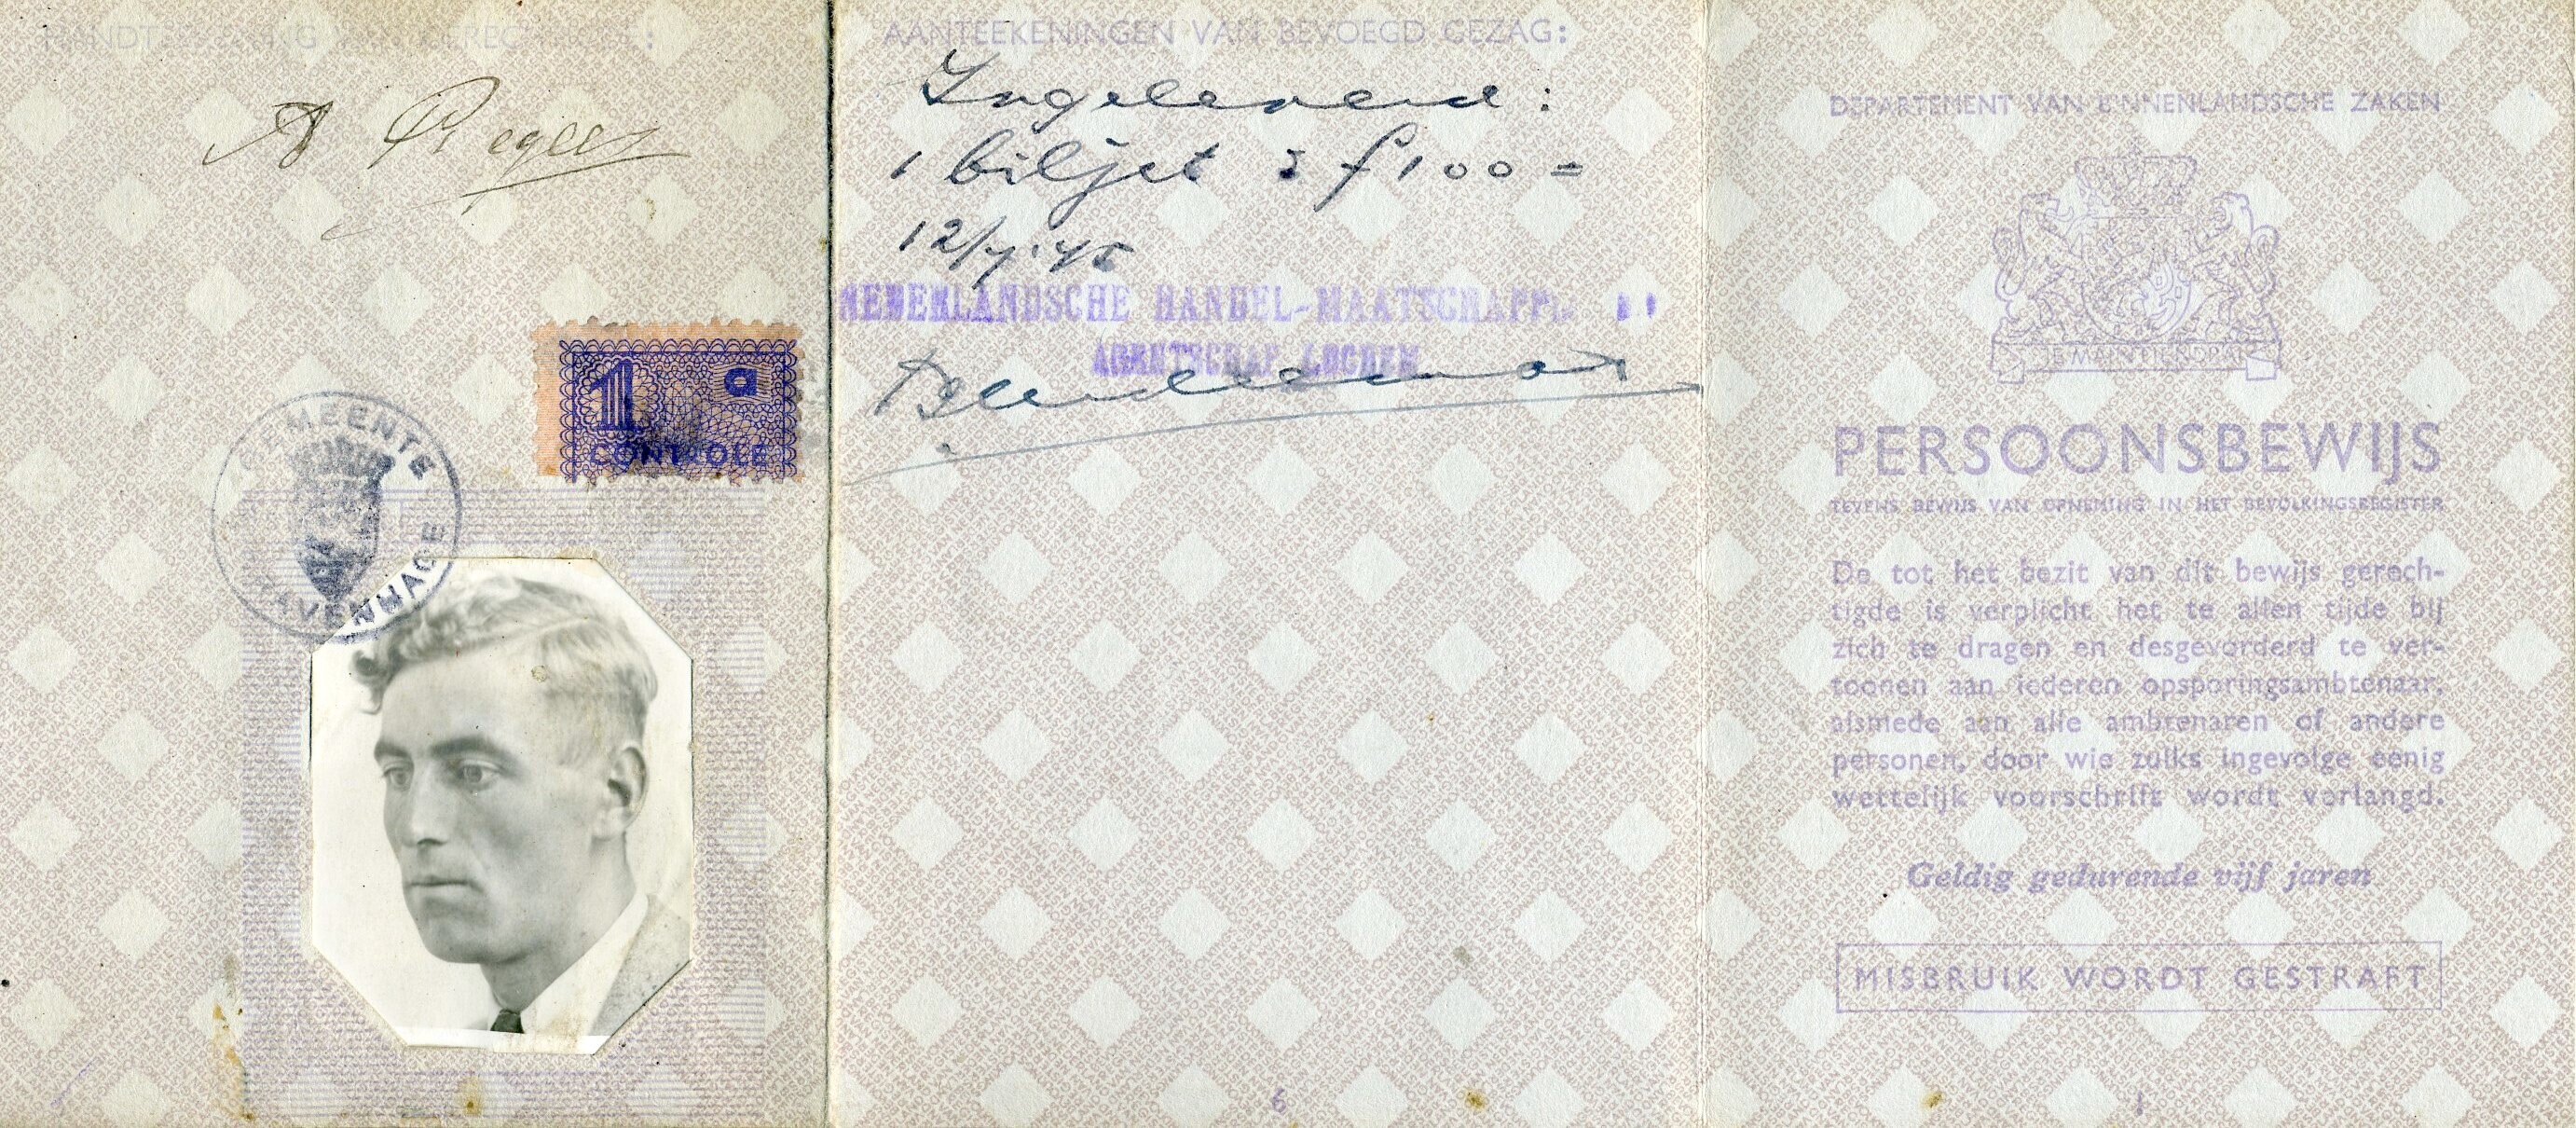 HANDTEEKENING VAN GERECHTIGDE:
A
1 a
CONTROLE
GEMEENTE
'S GRAVENHAGE
AANTEEKENINGEN VAN BEVOEGD GEZAG:
Ingeleverd:
1 biljet à f 100 =
12/7 '45
NEDERLANDSCHE HANDEL-MAATSCHAPPIJ
AGENTSCHAP LOCHEM
6
DEPARTEMENT VAN BINNENLANDSCHE ZAKEN
JE MAINTIENDRAI
PERSOONSBEWIJS
TEVENS BEWIJS VAN OPNEMING IN HET BEVOLKINGSREGISTER
De tot het bezit van dit bewijs gerech-
tigde is verplicht het te allen tijde bij
zich te dragen en desgevorderd te ver-
toonen aan iederen opsporingsambtenaar,
alsmede aan alle ambtenaren of andere
personen, door wie zulks ingevolge eenig
wettelijk voorschrift wordt verlangd.
Geldig gedurende vijf jaren
MISBRUIK WORDT GESTRAFT
1